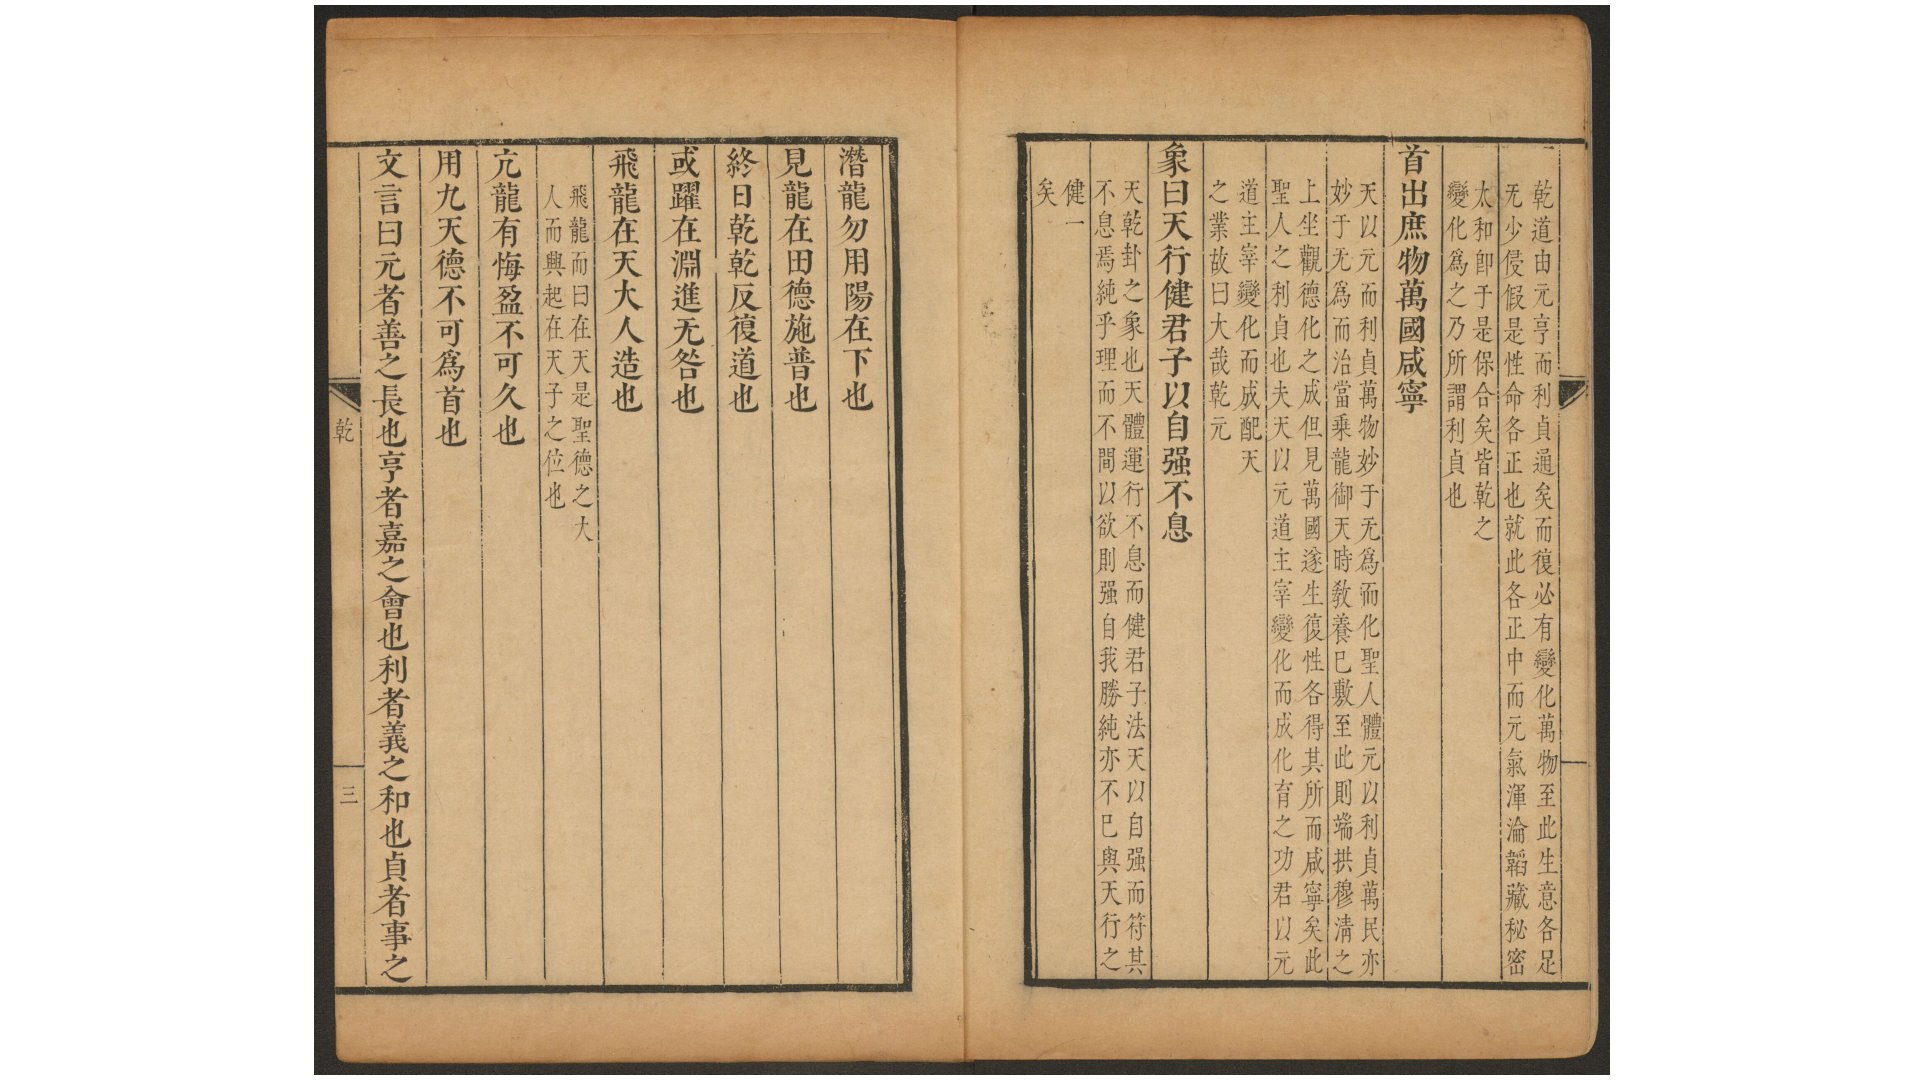 乾道由元亨而利貞通矣而復必有變化萬物至此生意各足
无少侵假是性命各正也就此各正中而元氣渾淪韜藏秘密
太和卽于是保合矣皆乾之
變化爲之乃所謂利貞也
首出庶物萬國咸寧
天以元而利貞萬物妙于无爲而化聖人體元以利貞萬民亦
妙于无爲而治當乘龍御天時敎養已敷至此則端拱穆清之
上坐觀德化之成但見萬國遂生復性各得其所而咸寧矣此
聖人之利貞也夫天以元道主宰變化而成化育之功君以元
道主宰變化而成配天
之業故曰大哉乾元
象曰天行健君子以自强不息
天乾卦之象也天體運行不息而健君子法天以自强而符其
不息焉純乎理而不間以欲則强自我勝純亦不已與天行之
健一
矣
潛龍勿用陽在下也
見龍在田德施普也
終日乾乾反復道也
或躍在淵進无咎也
飛龍在天大人造也
飛龍而曰在天是聖德之大
人而興起在天子之位也
亢龍有悔盈不可久也
用九天德不可爲首也
文言曰元者善之長也亨者嘉之會也利者義之和也貞者事之
乾
三